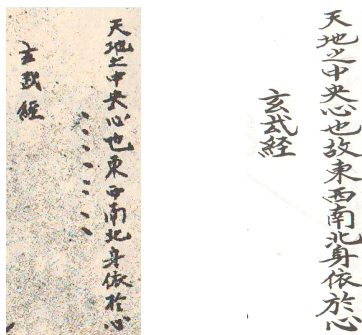 天地之中央心也故東西南北身依於心
玄武経
天地之中央心也東西南北身依於心
玄武經